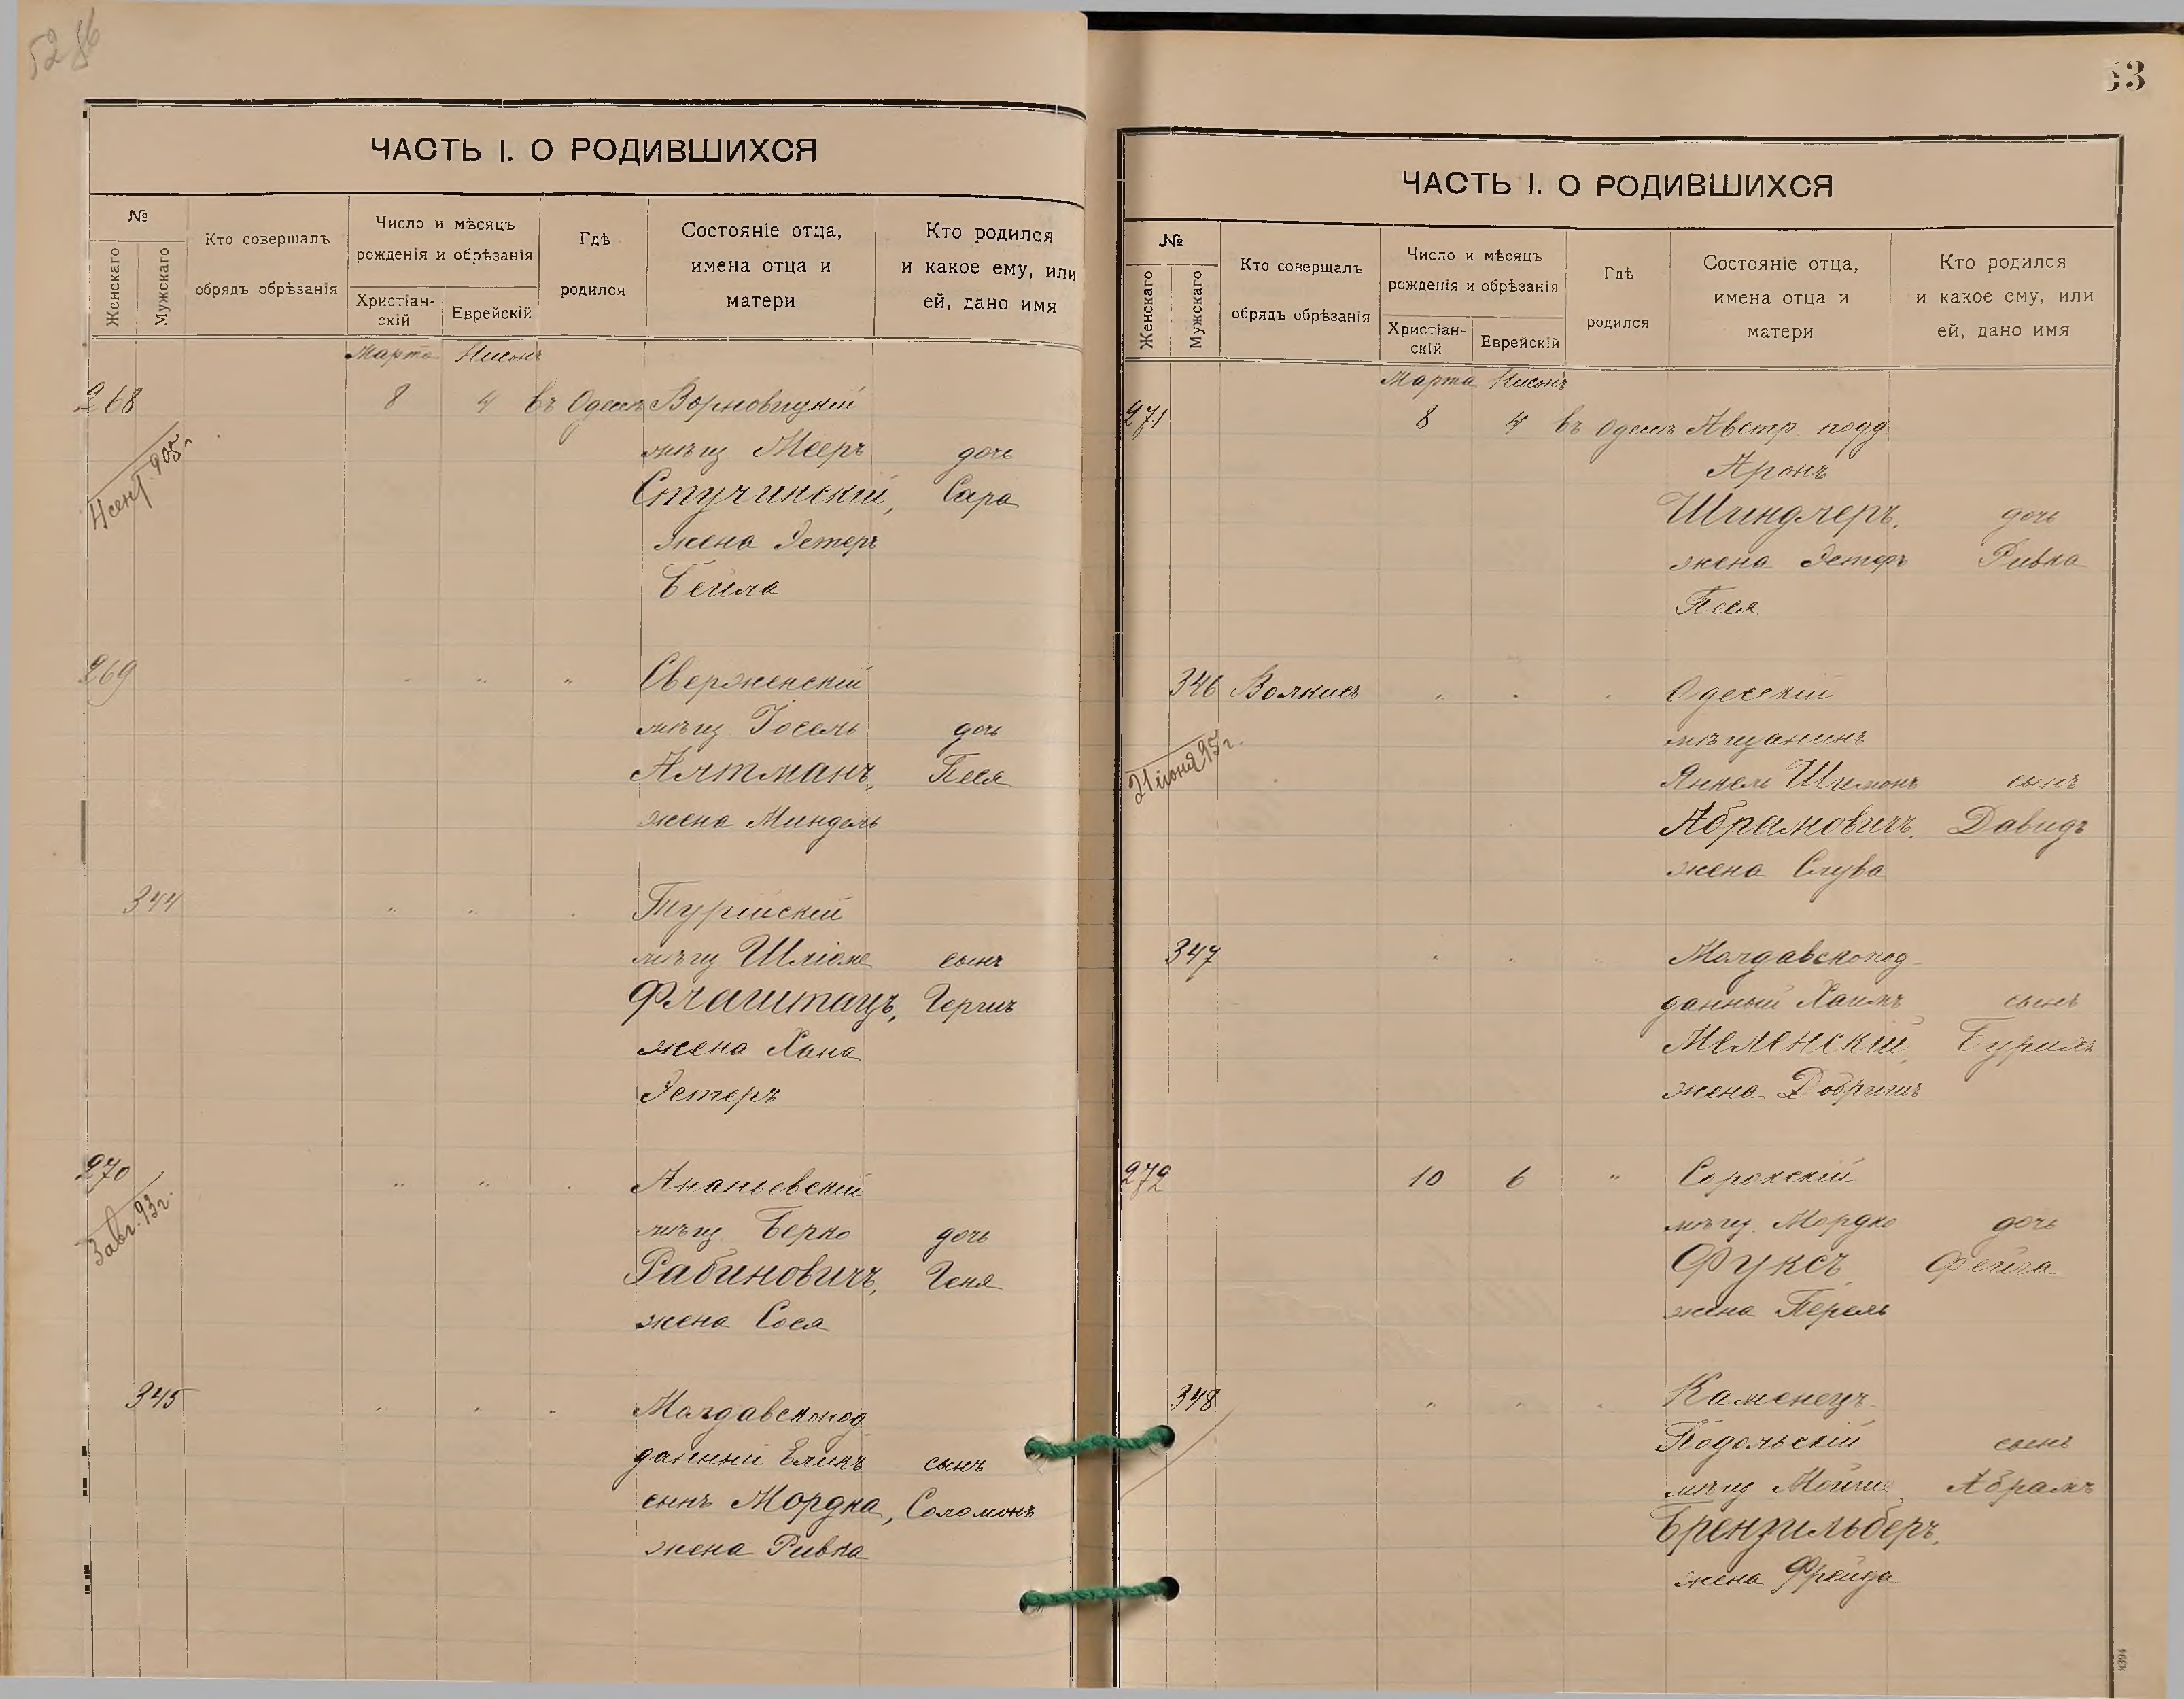 52
ЧАСТЬ I. О РОДИВШИХСЯ
№
Женскаго
Мужскаго
Кто совершалъ
обрядъ обрѣзанія
Число и мѣсяцъ
рожденія и обрѣзанія
Христіан-
скій
Еврейскій
Гдѣ
родился
Состояніе отца,
имена отца и
матери
Кто родился
и какое ему, или
ей, дано имя
Марта Нисонъ
268 8 4 въ Одессѣ
4 сент. 905 г.
мѣщ Мееръ дочь
Стучинскій, Сара
жена Эстеръ
Бейла
269 " " " Сверженскій
мѣщ Іосель дочь
Алтманъ, Песя
жена Миндель
344 " " " Турійскій
мѣщ Шліоме сынъ
Флаштацъ, Гершъ
жена Хана
Эстеръ
270 " " " Ананьевскій
3 авг. 93 г.
мѣщ Берко дочь
Рабиновичъ, Геня
жена Сося
345 " " " Молдавскопод
данный Еликъ сынъ
сынъ Мордка, Соломонъ
жена Ривка
53
ЧАСТЬ I. О РОДИВШИХСЯ
№
Женскаго
Мужскаго
Кто совершалъ
обрядъ обрѣзанія
Число и мѣсяцъ
рожденія и обрѣзанія
Христіан-
скій
Еврейскій
Гдѣ
родился
Состояніе отца,
имена отца и
матери
Кто родился
и какое ему, или
ей, дано имя
Марта Нисонъ
271 8 4 въ Одессѣ Австр. подд.
Аронъ
Шиндлеръ, дочь
жена Эстеръ Ривка
Песя
346 Волкисъ " " " Одесскій
мѣщанинъ
21 іюня 95 г.
Янкель Шимонъ сынъ
Абрамовичъ, Давидъ
жена Слува
347 " " " Молдавскопод-
данный Хаимъ сынъ
Меленскій,
жена Добришъ
272 10 6 " Сорокскій
мѣщ. Мордко дочь
Фуксъ, Фейга
жена Перель
348 " " " Каменецъ-
Подольскій сынъ
мѣщ Мойше Абрамъ
Брензильберъ,
жена Фрейда
8394